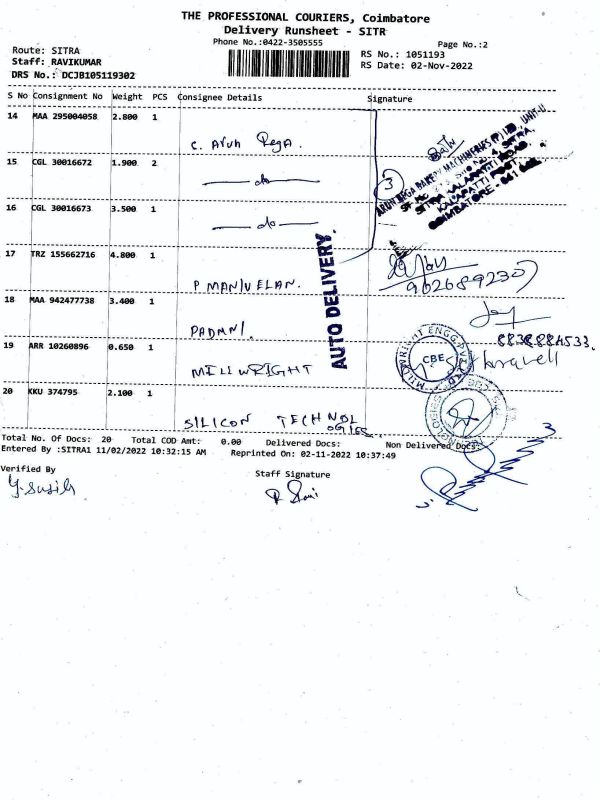 THE PROFESSIONAL COURIERS, Coimbatore
Delivery Runsheet - SITR
Phone No.:0422-3505555
Page No.:2
Route: SITRA
RS No.: 1051193
Staff: RAVIKUMAR
RS Date: 02-Nov-2022
DRS No.: DCJB105119302
S No Consignment No Weight PCS Consignee Details Signature
14 MAA 295004058 2.800 1
C. Arun Rega.
15 CGL 30016672 1.900 2
do
3
16 CGL 30016673 3.500 1
do
ARUN REGA BAKERY MACHINERIES (P) LTD., UNIT-U
KALAPATTI POST,
COIMBATORE - 641
AUTO DELIVERY.
17 TRZ 155662716 4.800 1
P MANIVELAN.
9626892307
18 MAA 942477738 3.400 1
PADMNI.
19 ARR 10260896 0.650 1
MILLWRIGHT
MILLWRIGHT ENGG
CBE
20 KKU 374795 2.100 1
SILICON TECHNOL
OGIES
Total No. Of Docs: 20 Total COD Amt: 0.00 Delivered Docs: Non Delivered Docs:
3
Entered By :SITRA1 11/02/2022 10:32:15 AM Reprinted On: 02-11-2022 10:37:49
Verified By
Staff Signature